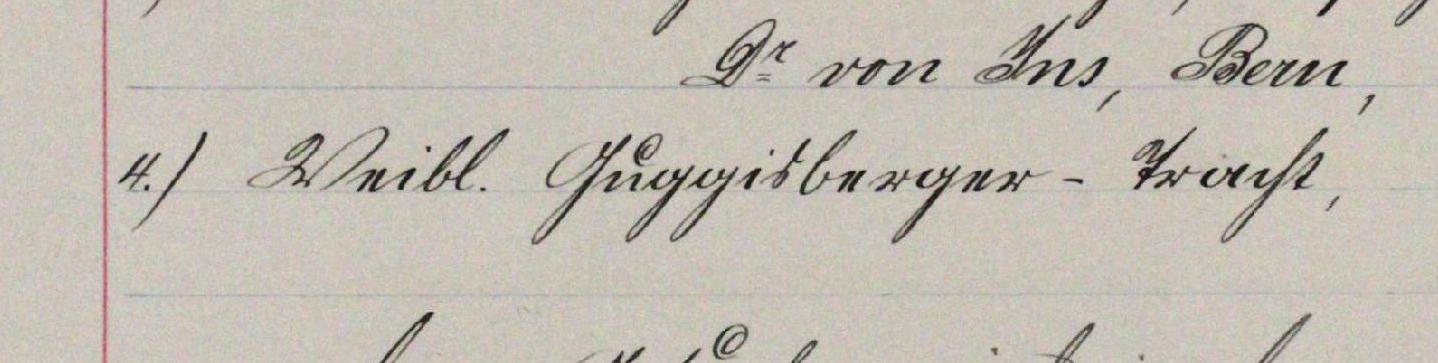 Dr von Ins, Bern,
4.) Weibl. Guggisberger - Tracht,